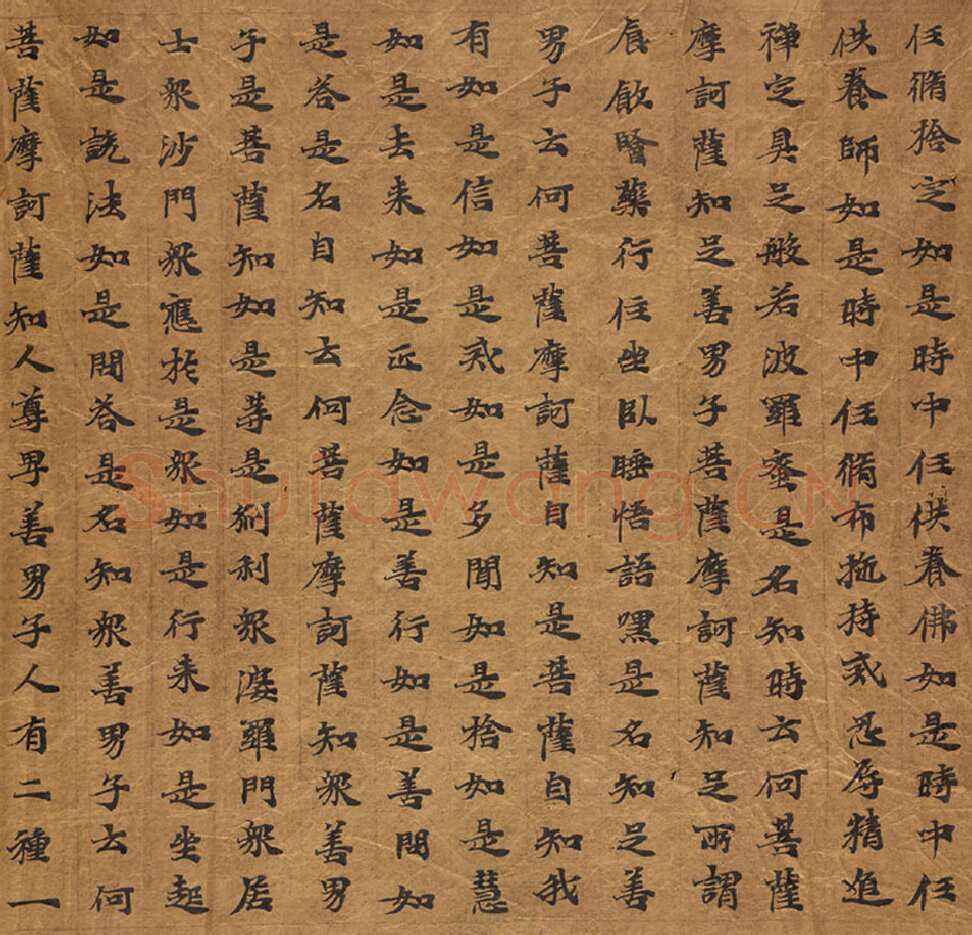 任脩捨定如是時中任供養佛如是時中任
供養師如是時中任脩布施持戒忍辱精進
禪定具足般若波羅蜜是名知時云何菩薩
摩訶薩知足善男子菩薩摩訶薩知足所謂
食飲醫藥行住坐臥睡悟語嘿是名知足善
男子云何菩薩摩訶薩自知是菩薩自知我
有如是信如是戒如是多聞如是捨如是慧
如是去来如是正念如是善行如是善問如
是答是名自知云何菩薩摩訶薩知衆善男
子是菩薩知如是等是刹利衆婆羅門衆居
士衆沙門衆應於是衆如是行来如是坐起
如是說法如是問答是名知衆善男子云何
菩薩摩訶薩知人尊卑善男子人有二種一
Shufawang.CN